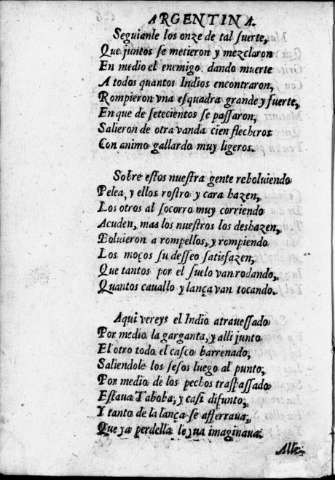 ARGENTINA.
Seguianle los onze de tal suerte,
Que juntos se metieron y mezclaron
En medio el enemigo dando muerte
A todos quantos Indios encontraron,
Rompieron vna esquadra grande y fuerte,
En que de setecientos se passaron,
Salieron de otra vanda cien flecheros
Con animo gallardo muy ligeros.
Sobre estos nuestra gente reboluiendo
Pelea, y ellos rostro y cara hazen,
Los otros al socorro muy corriendo
Acuden, mas los nuestros los deshazen,
Boluieron a rompellos, y rompiendo
Los moços su desseo satisfazen,
Que tantos por el suelo van rodando,
Quantos cauallo y lança van tocando.
Aqui vereys el Indio atrauessado
Por medio la garganta, y alli junto
El otro todo el casco barrenado,
Saliendole los sesos luego al punto,
Por medio de los pechos traspassado
Estaua Taboba, y casi difunto,
Y tanto de la lança se afferraua,
Que ya perdella le yua imaginaua.
Alle-